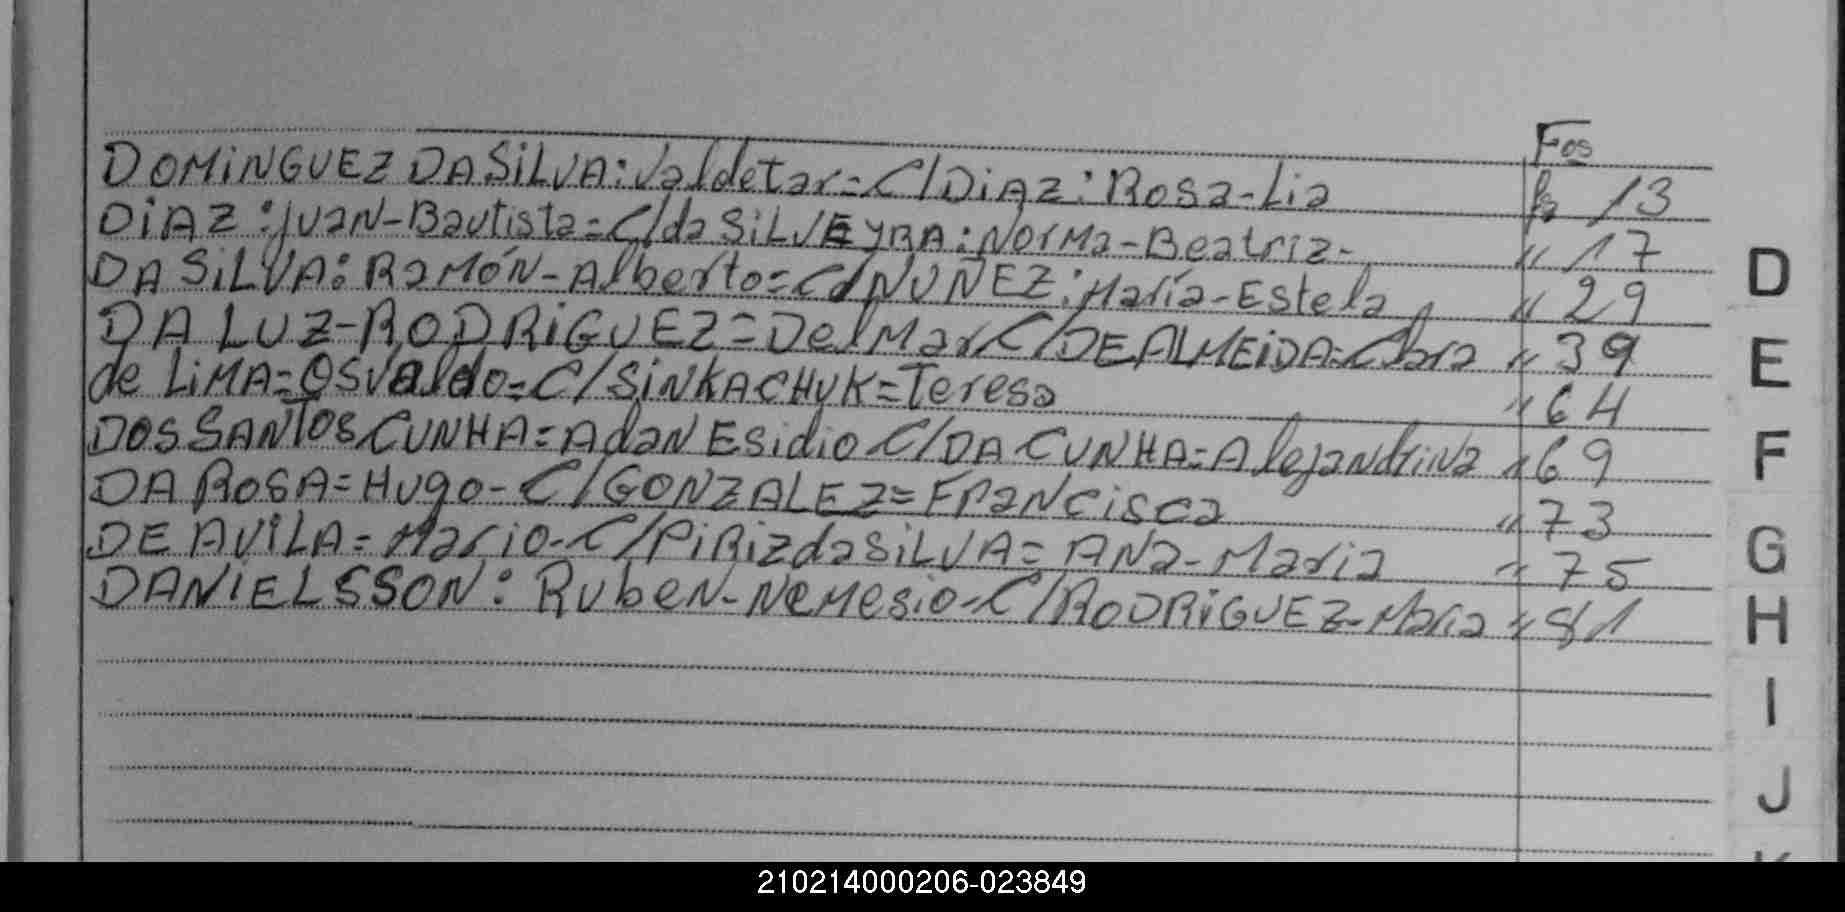 Fos
DOMiNGUEZ DASiLVA: Valdetar=C/DiAZ: Rosa-Lia fs 13
DiAZ: JuaN-Bautista=C/da SiLVEYRA: NorMa-Beatriz- " 17
DA SiLVA: RaMóN-Alberto=C/NUÑEZ: María-Estela " 29
DA LUZ-RODRiGUEZ=DelMar C/DE ALMEiDA=Clara " 39
de LiMA=OSValdo=C/SiNKACHUK=Teresa " 64
DOS SANTOS CUNHA=AdaN Esidio C/DA CUNHA=AlejaNdriNa " 69
DA ROSA=Hugo-C/GONZALEZ=FRaNCisca " 73
DE AViLA=Mario-C/PiRiZ da SiLVA=ANa-Maria " 75
DANIELSSON: RubeN-NeMesio-C/RODRiGUEZ-Maria " 81
D
E
F
G
H
I
J
210214000206-023849